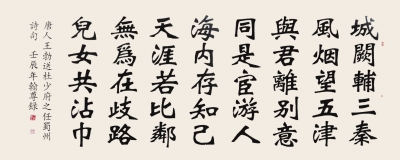 城闕輔三秦
風烟望五津
與君離别意
同是宦游人
海内存知己
天涯若比鄰
無爲在歧路
兒女共沾巾
唐人王勃送杜少府之任蜀州
詩句 壬辰年翰尊録